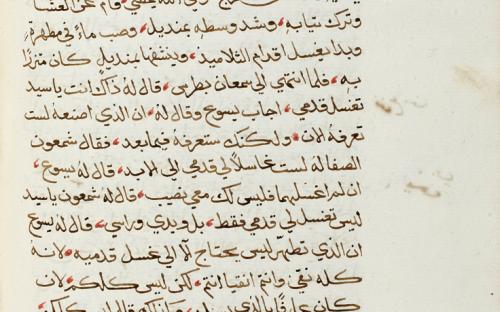 وترك ثيابه، وشد وسطه بمنديل، وصب ماءً في مطهرةٍ
وبدا يغسل اقدام التلاميذ، وينشفها بمنديلٍ كان متزرًا
بهِ، فلما انتهي الي سمعان بطرس، قال لهُ ذاك انت ياسيد
تغسل قدمي، اجاب يسوع وقال لهُ، ان الذي اصنعهُ لست
تعرفهُ الان، ولكنك ستعرفهُ فيما بعد، فقال شمعون
الصفا لهُ لست غاسلًا لي قدمي الي الابد، قال لهُ يسوع،
ان لم اغسلهما فليس لك معي نصيب، قال لهُ شمعون ياسيد
ليس تغسل لي قدمي فقط، بل ويدي وراسي، قال لهُ يسوع
ان الذي تطهر ليس يحتاج الا الي غسل قدميه، لانهُ
كله نقي، وانتم انقيا انتم، لكن ليس كلكم، لان
كان عارفًا بالذي